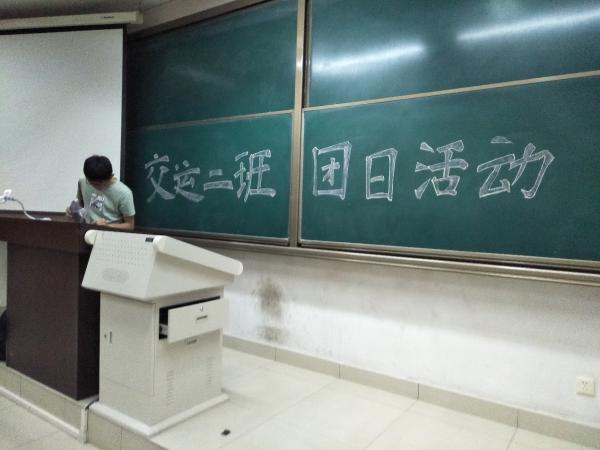 交运二班 团日活动